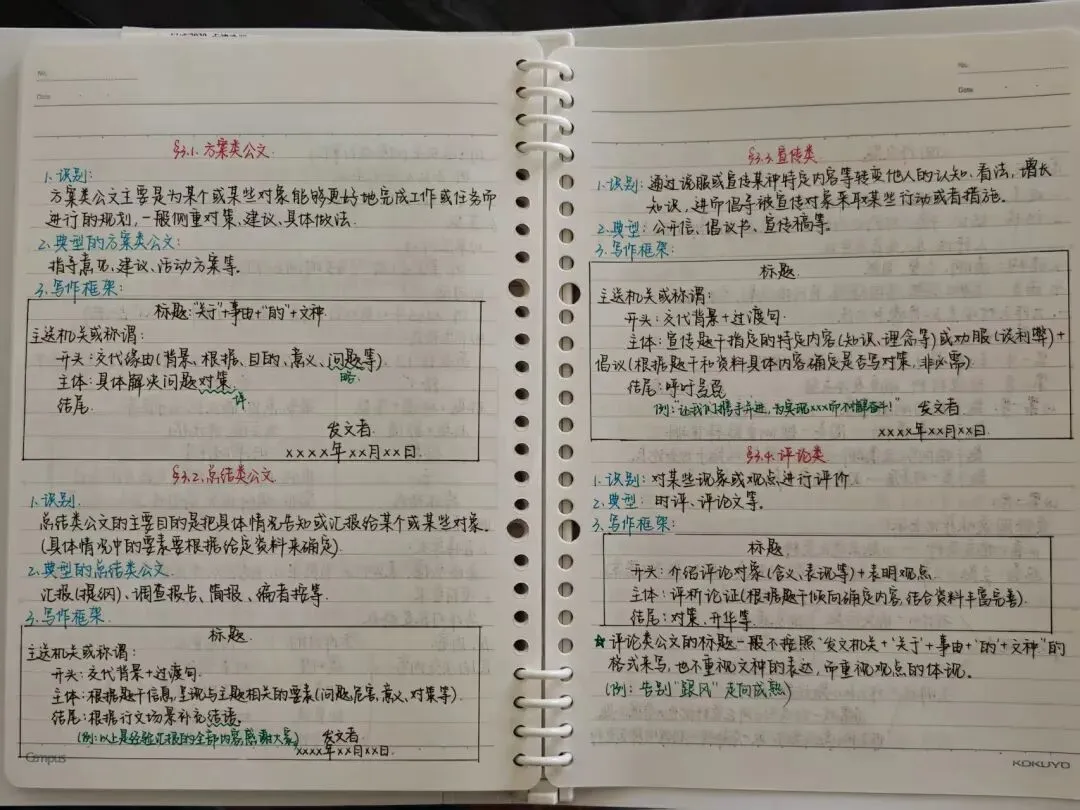 No.
Date
§3.1. 方案类公文.
1. 识别:
方案类公文主要是为某个或某些对象能够更好地完成工作或任务而
进行的规划,一般侧重对策、建议、具体做法.
2. 典型的方案类公文:
指导意见、建议、活动方案等。
3. 写作框架:
标题:"关于"+事由+"的"+文种
主送机关或称谓:
开头:交代缘由(背景、根据、目的、意义、问题等)
略
主体:具体解决问题对策
详
结尾.
发文者
xxxx年xx月xx日.
§3.2. 总结类公文
1. 识别.
总结类公文的主要目的是把具体情况告知或汇报给某个或某些对象。
(具体情况中的要素要根据给定资料来确定).
2. 典型的总结类公文.
汇报(提纲)、调查报告、简报、编者按等.
3. 写作框架.
标题.
主送机关或称谓:
开头:交代背景+过渡句.
主体:根据题干信息,呈现与主题相关的要素(问题,危害,意义、对策等).
结尾:根据行文场景补充结语。
(例:以上是经验汇报的全部内容,感谢大家)
发文者.
xxxx年xx月xx日.
Campus
No.
Date
§3.3. 宣传类
1. 识别:通过说服或宣传某种特定内容等转变他人的认知、看法,增长
知识,进而倡导被宣传对象采取某些行动或者措施。
2. 典型:公开信、倡议书、宣传稿等。
3. 写作框架:
标题.
主送机关或称谓:
开头:交代背景+过渡句.
主体:宣传题干指定的特定内容(知识、理念等)或劝服(谈利弊)+
倡议(根据题干和资料具体内容确定是否写对策,非必需)
结尾:呼吁号召
例:"让我们携手并进,为实现xxx而不懈奋斗!" 发文者
xxxx年xx月xx日.
§3.4. 评论类
1. 识别:对某些现象或观点进行评价.
2. 典型:时评、评论文等。
3. 写作框架:
标题
开头:介绍评论对象(含义、表现等)+表明观点.
主体:评析论证(根据题干倾向确定内容,结合资料丰富完善).
结尾:对策、升华等.
★评论类公文的标题一般不按照"发文机关+"关于"+事由+"的"+文种"的
格式来写,也不重视文种的表达,而重视观点的体现。
(例:告别"跟风"走向成熟)
KOKUYO